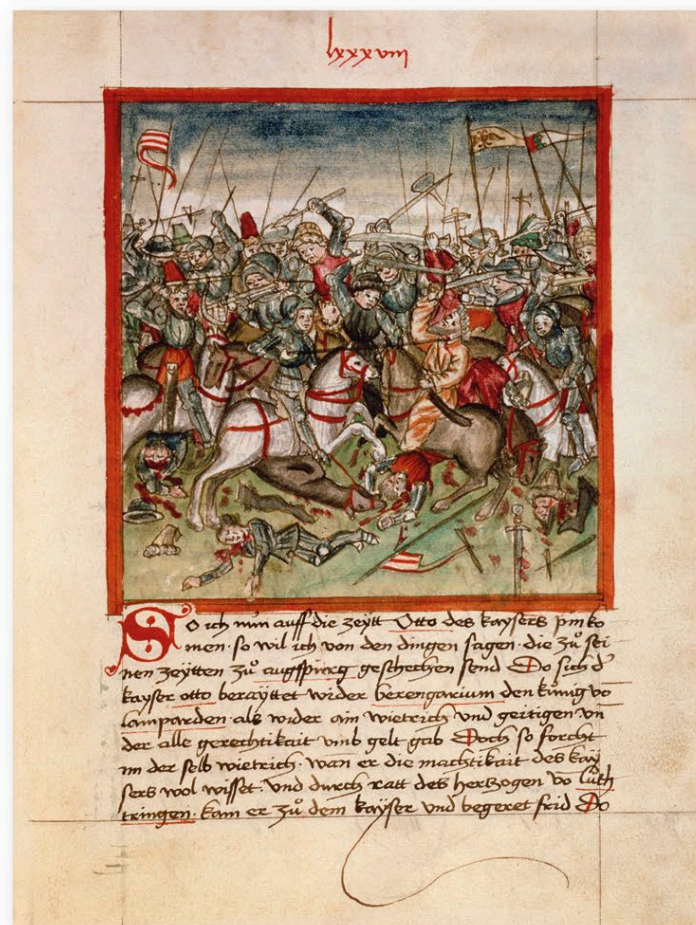 lxxxviii
So ich nun auff die zeytt Otto des kaysers pin ko
men · so wil ich von den dingen sagen · die zů sei
nen zeytten zů augspurg geschechen send Do sich d'
kayser otto berayttet wider berengarium den künig vo
lamparden · als wider ain wietrich vnd geitigen vn
der alle gerechtikait vmb gelt gab Doch so forcht
im der selb wietrich · wan er die machtikait des kay
sers wol wisset · vnd durch ratt des hertzogen vo luth
tringen · kam er zů dem kayser vnd begeret frid Do